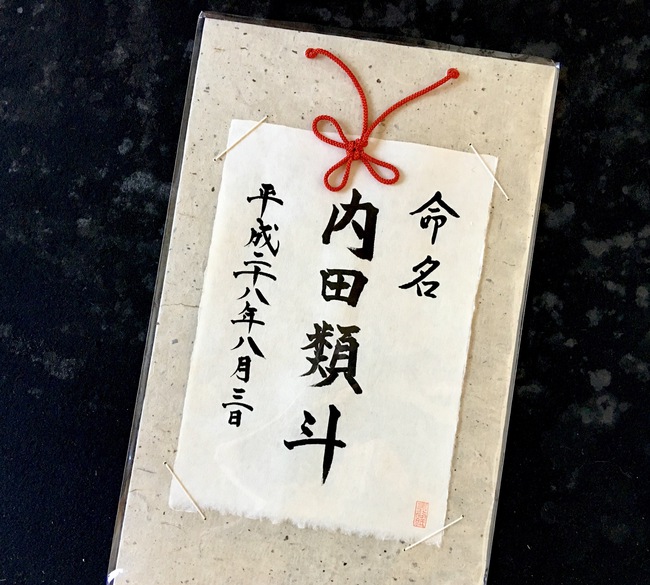 命名
内田類斗
平成二十八年八月三日